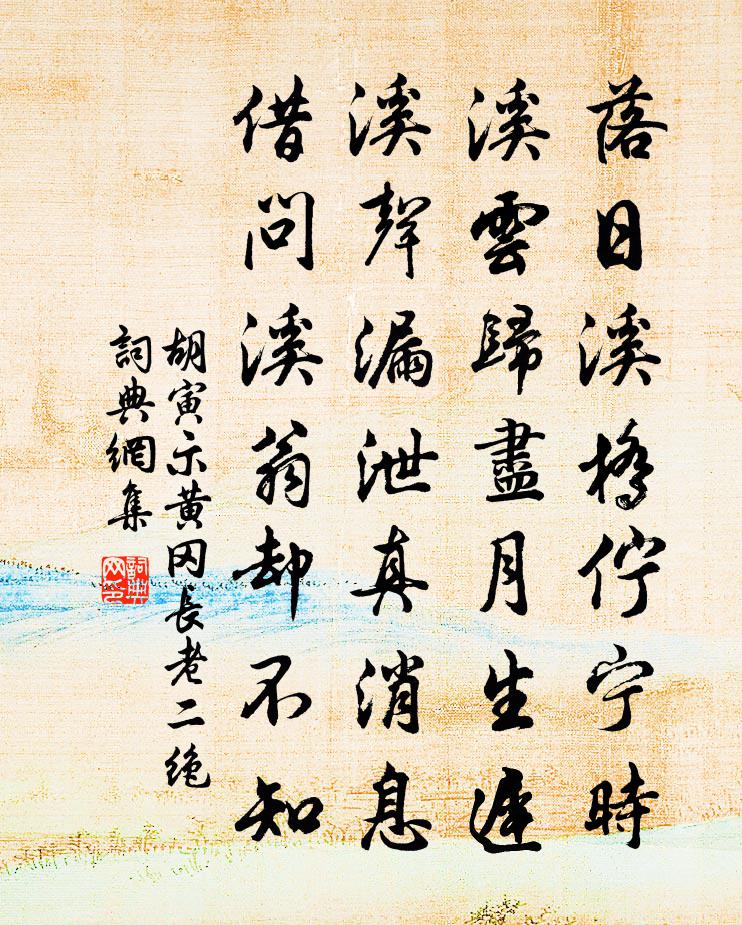 落日溪橋佇宁時
溪雲歸盡月生遲
溪聲漏泄真消息
借問溪翁却不知
胡寅示黄冈長老二絶
詞典網集
詞典网